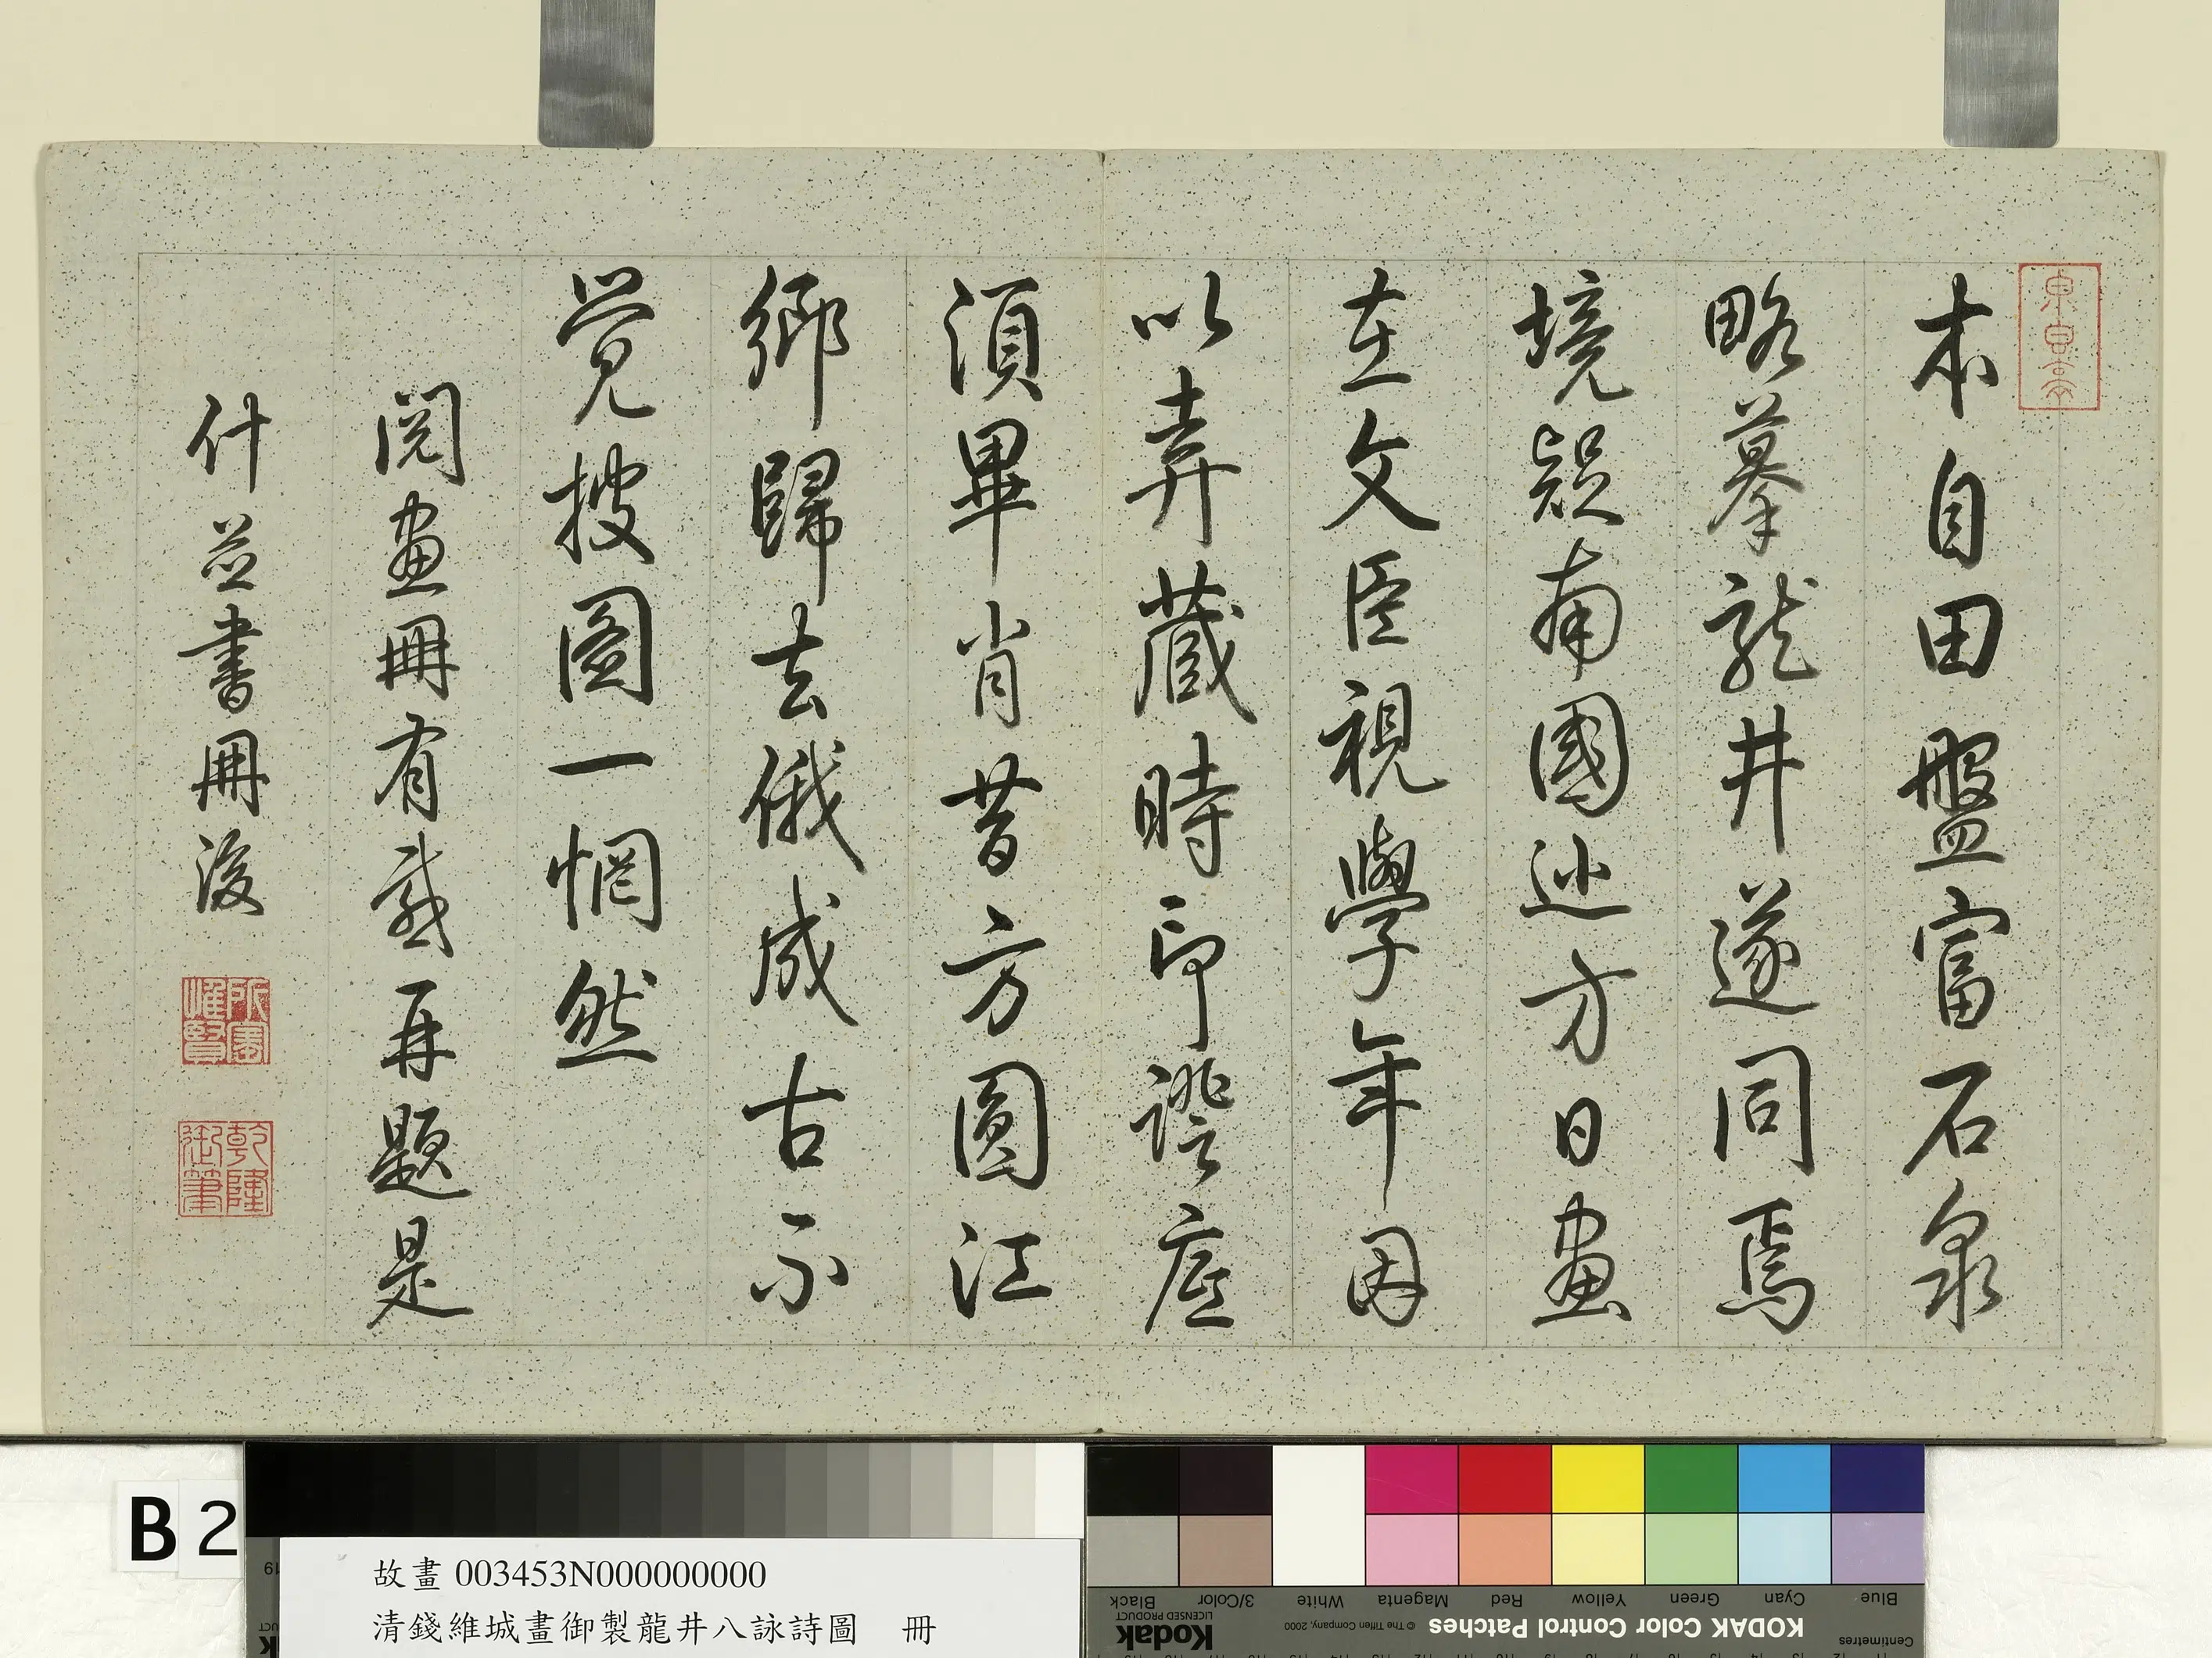 本自田盤富石泉
略摹龍井遂同焉
境疑南國巡方日畫
在文臣視學年因
以弆藏時印證底
須畢肖昔方圓江
鄉歸去俄成古不
覺披圖一惘然
閱畫冊有感再題是
什並書冊後
所寶惟賢
乾隆御筆
B 2
故畫 003453N000000000
清錢維城畫御製龍井八詠詩圖 冊
KODAK Color Control Patches
© The Tiffen Company, 2000
Kodak
LICENSED PRODUCT
Centimetres
Blue Cyan Green Yellow Red Magenta White 3/Color Black